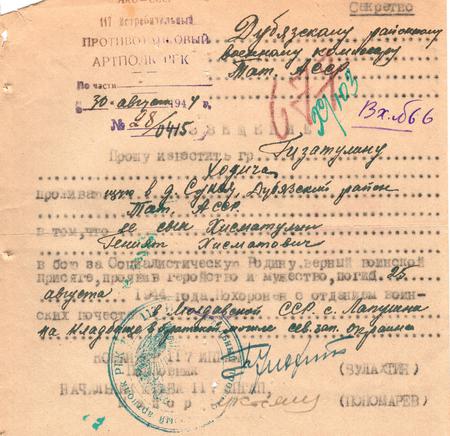 Секретно
НКО-СССР
117 Истребительный
ПРОТИВОТАНКОВЫЙ
АРТПОЛК РГК
Дубязскому районному
военному комиссару
Тат. АССР
По части
30 август 1944 г.
№ 28/0415
677
39/103
Вх. 666
ИЗВЕЩЕНИЕ
Прошу известить гр. Гизатулину
проживающ в д. Сукся, Дубязский район
Тат. АССР
в том, что ее сын Хисматулин
Хисматович
в бою за Социалистическую Родину, верный воинской
присяге, проявив геройство и мужество, погиб 25
августа 1944 года. Похоронен с отданием воин-
ских почестей в Молдавской ССР с. Лапушна
на кладбище в братской могиле сев. зап. окраина
КОМАНДИР 117 ИПТАП
(БУЛАХТИН)
НАЧАЛЬНИК ШТАБА 117 ИПТАП
(ПОНОМАРЕВ)